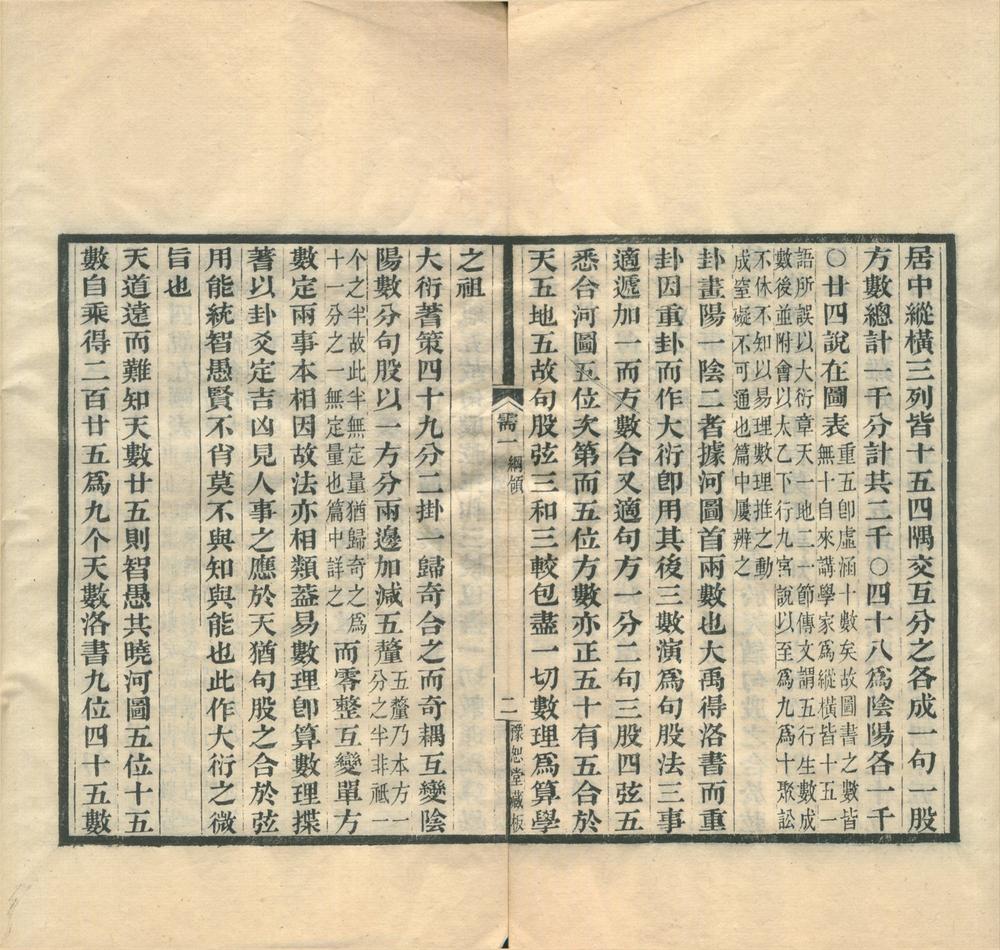 居中縱橫三列皆十五四隅交互分之各成一句一股
方數總計一千分計其二千〇四十八為陰陽各一千
〇廿四說在圖表重五卽虛涵十數矣故圖書之數皆
無十自來講學家為縱橫皆十五一
語所誤以大衍章天一地二一節傳文謂五行生數成
數後並附會以太乙下行九宮說以至為九為十聚訟
不休不知以易理數理推之動
成窒礙不可通也篇中屢辨之
卦畫陽一陰二者據河圖首兩數也大禹得洛書而重
卦因重卦而作大衍卽用其後三數演為句股法三事
適遞加一而方數合又適句方一分二句三股四弦五
悉合河圖五位次第而五位方數亦正五十有五合於
天五地五故句股弦三和三較包盡一切數理為算學
需一 綱領
二
豫恕堂藏板
之祖
大衍蓍策四十九分二掛一歸奇合之而奇耦互變陰
陽數分句股以一方分兩邊加減五釐五釐乃本方一
分之半非祗一
个之半故此半無定量猶歸奇之為
十一分之一無定量也篇中詳之而零整互變單方
數定兩事本相因故法亦相類葢易數理卽算數理揲
蓍以卦爻定吉凶見人事之應於天猶句股之合於弦
用能統智愚賢不肖莫不與知與能也此作大衍之微
旨也
天道遠而難知天數廿五則智愚共曉河圖五位十五
數自乘得二百廿五為九个天數洛書九位四十五數